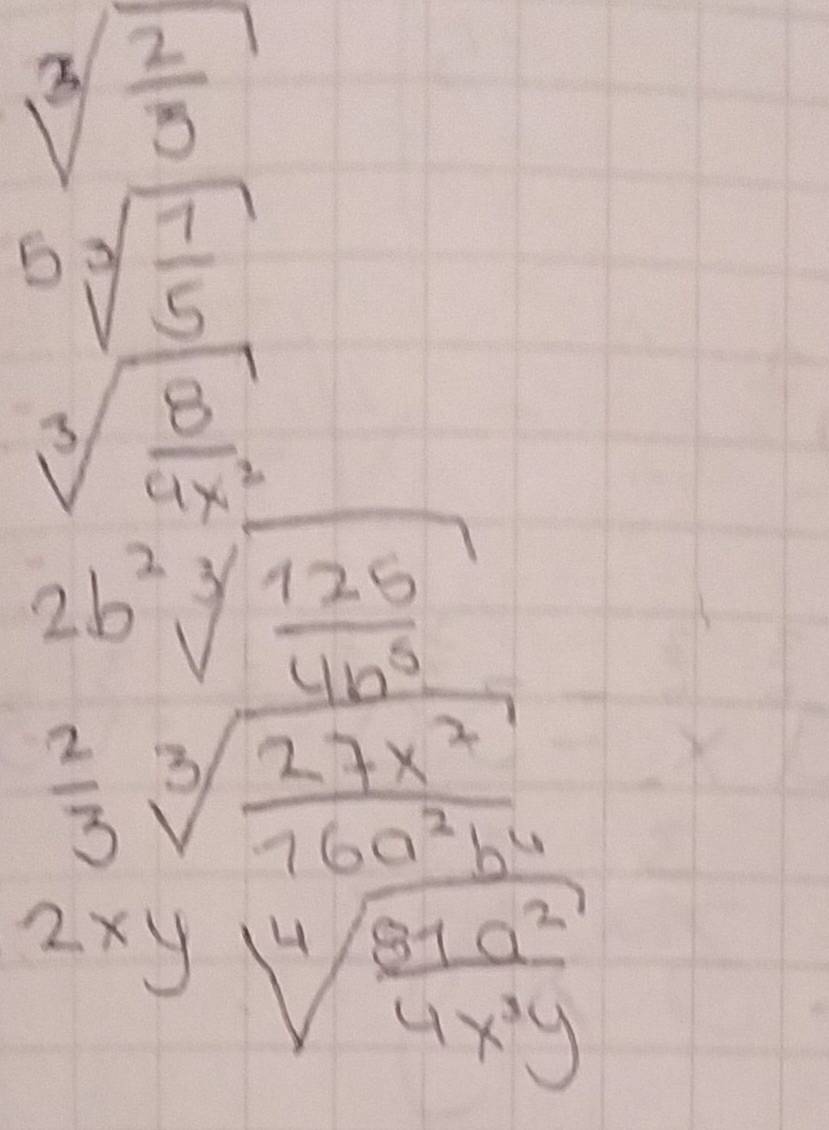 ∛(2/3)
5 ∛(1/5)
∛(8/(4x²))
2b² ∛(125/(4b⁵))
2/3 ∛(27x²/(16a²b⁴))
2xy ∜(81a²/(4x³y))